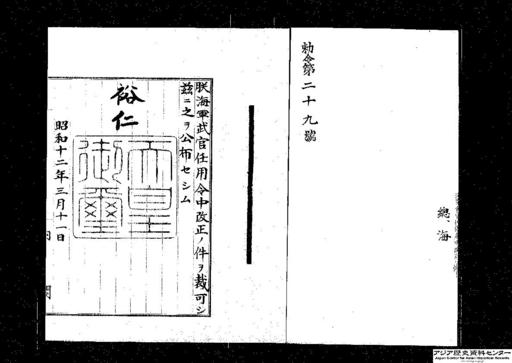 勅令第二十九號
總、海
朕海軍武官任用令中改正ノ件ヲ裁可シ
茲ニ之ヲ公布セシム
裕仁
天皇
御璽
昭和十二年三月十一日
内閣
アジア歴史資料センター
Japan Center for Asian Historical Records